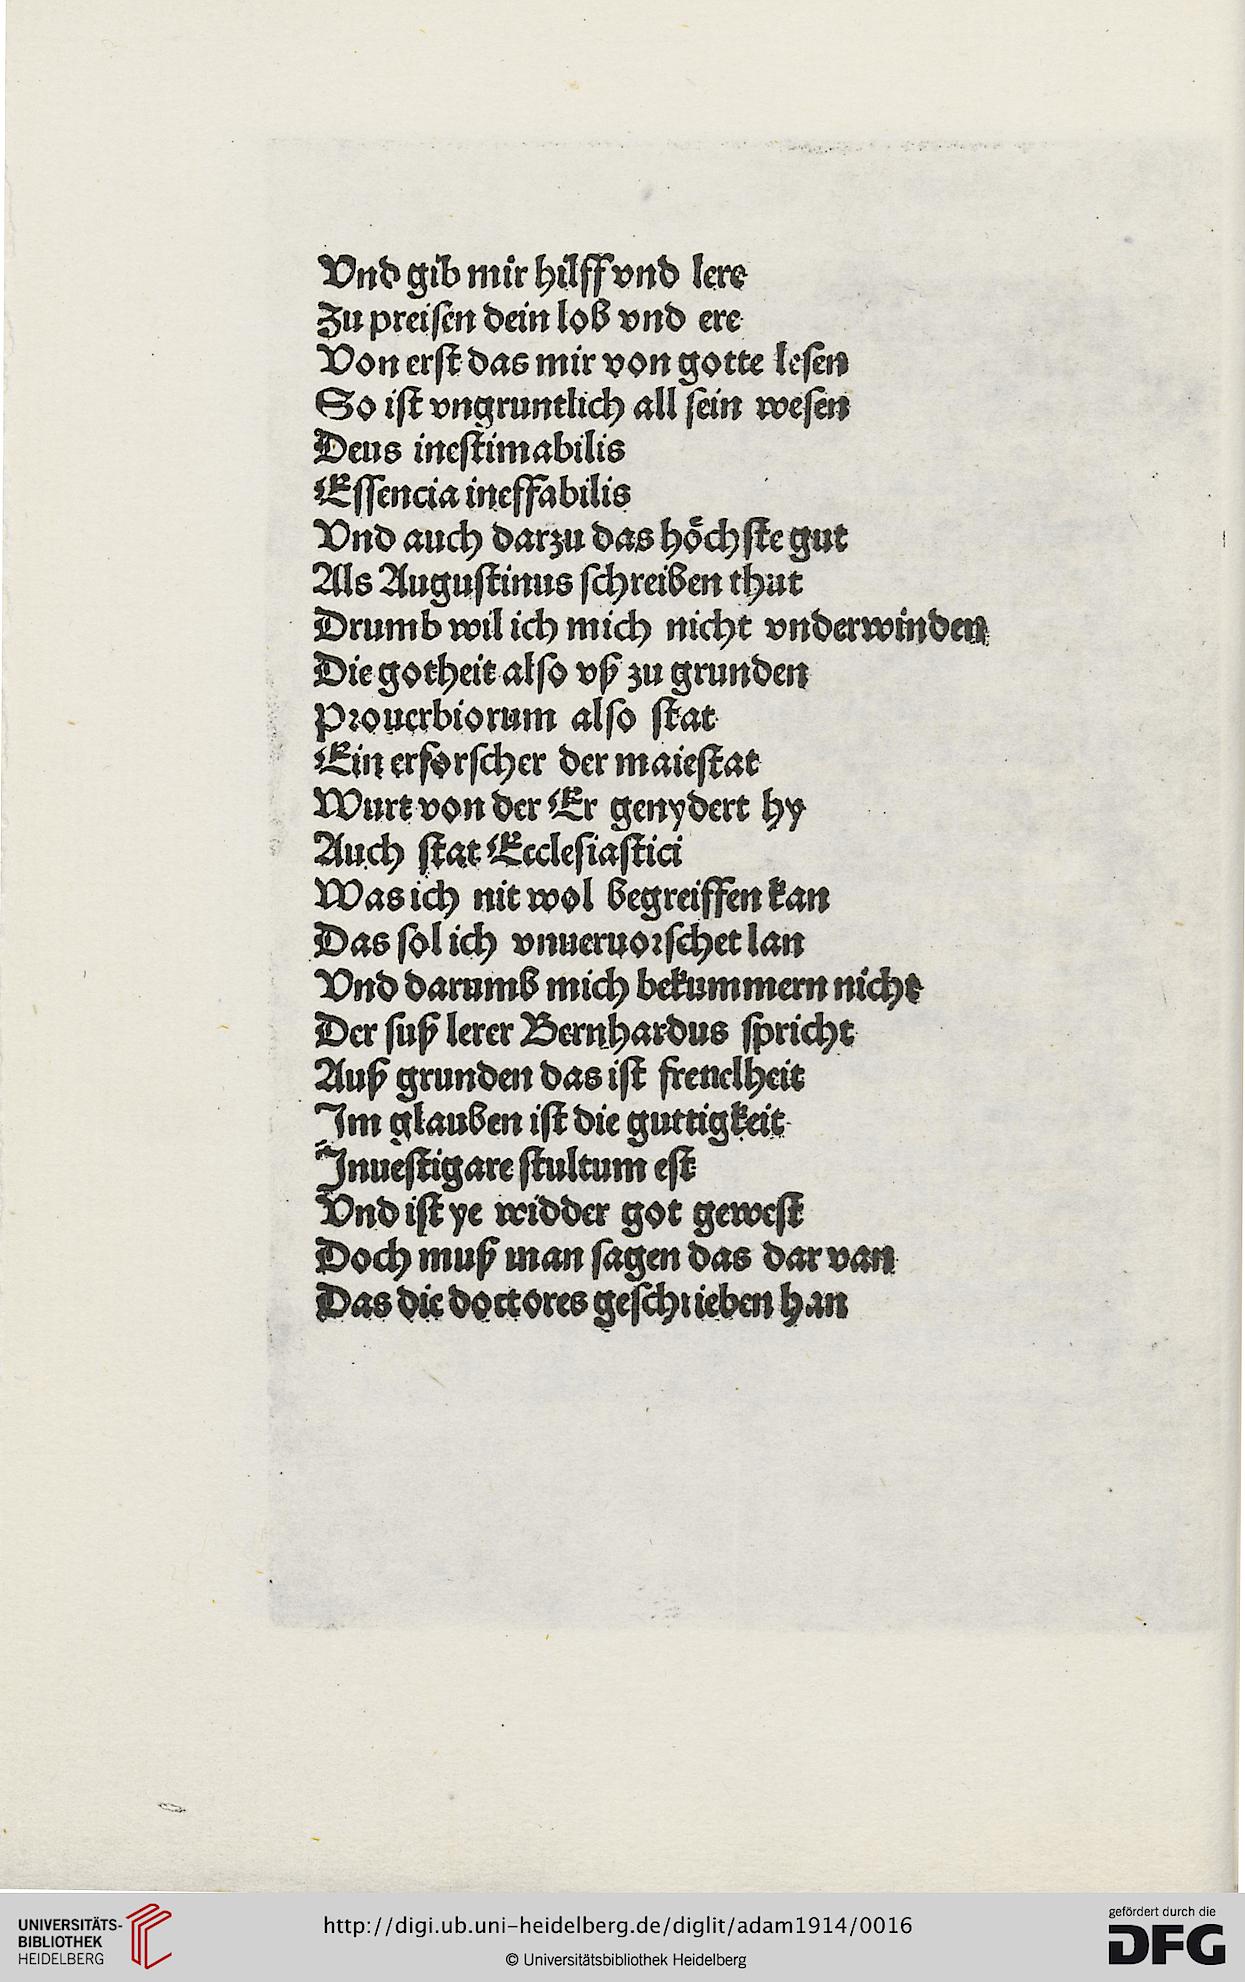 Vnd gib mir hilff vnd lere
Zu preisen dein lob vnd ere
Von erst das mir von gotte lesen
So ist vngruntlich all sein wesen
Deus inestimabilis
Essencia ineffabilis
Vnd auch darzu das hoͤchste gut
Als Augustinus schreiben that
Drumb wil ich mich nicht vnderwinden
Die gotheit also vß zu grunden
Prouerbiorum also stat
Ein erforscher der maiestat
Wurt von der Er genydert hy
Auch stat Ecclesiastici
Was ich nit wol begreiffen kan
Das sol ich vnueruorschet lan
Vnd darumb mich bekummern nicht
Der suß lerer Bernhardus spricht
Auß grunden das ist freuelheit
Im glauben ist die guttigkeit
Inuestigare stultum est
Vnd ist ye widder got gewest
Doch muß man sagen das dar van
Das die doctores geschrieben han
UNIVERSITÄTS-
BIBLIOTHEK
HEIDELBERG
http://digi.ub.uni-heidelberg.de/diglit/adam1914/0016
© Universitätsbibliothek Heidelberg
gefördert durch die
DFG